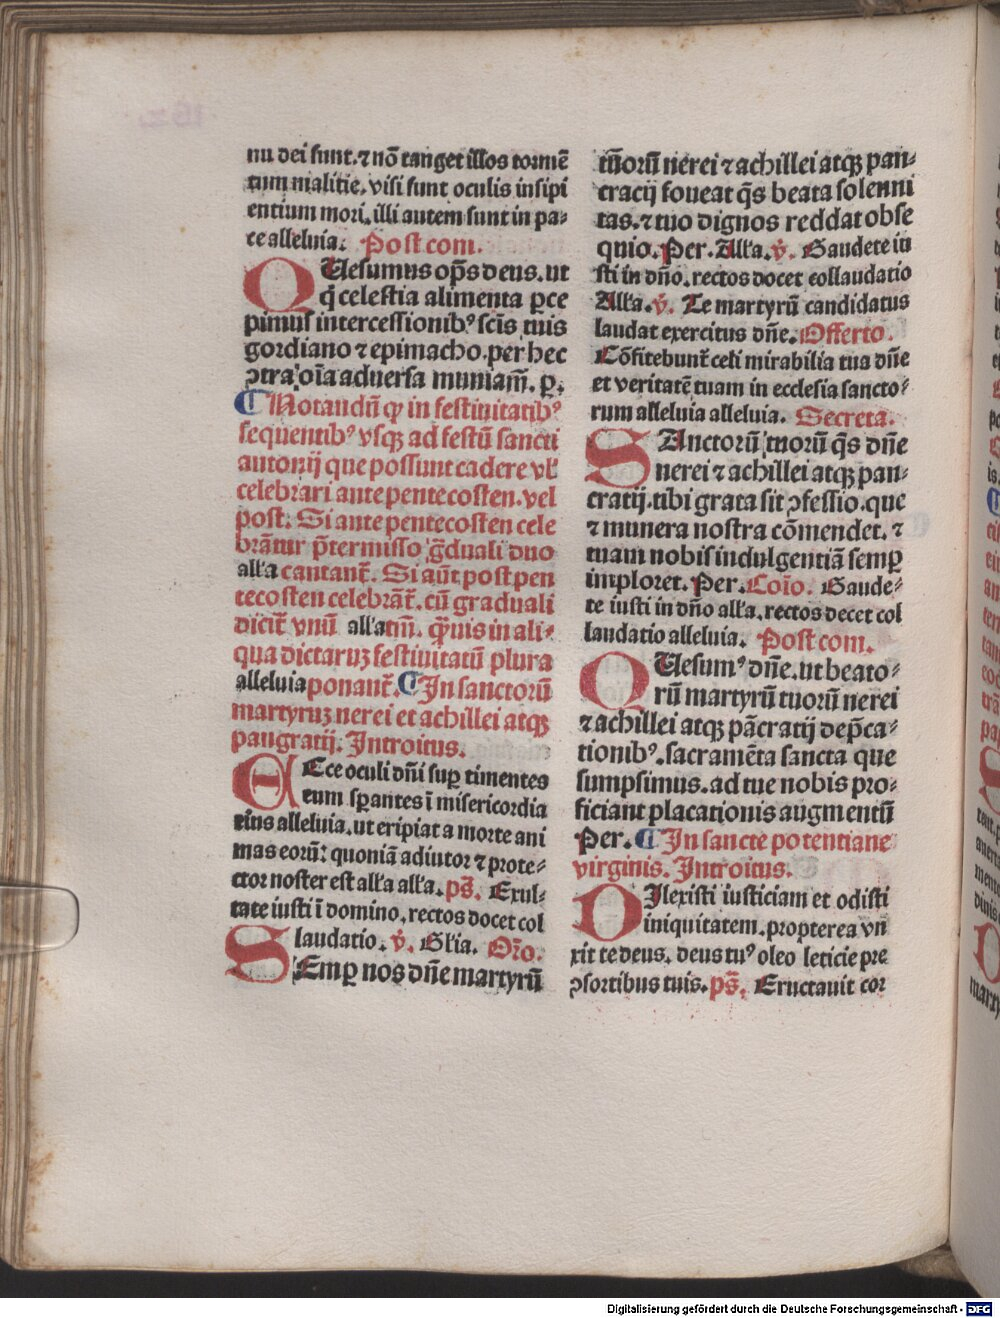 nu dei sunt.⁊ nō tanget illos tormē
tum malitie. visi sunt oculis insipi
entium mori. illi autem sunt in pa⸗
ce alleluia. Post com.
QUesumus op̄s deus. ut
q̄ celestia alimenta p̱ce
pimus intercessionibꝰ sc̄is tuis
gordiano ⁊ epimacho. per hec
ꝯtra oīa aduersa muniam̄. p̱.
¶ Notandū ꝙ in festiuitatibꝰ
sequentibꝰ vsqꝫ ad festū sancti
antonij que possunt cadere vl'
celebrari ante pentecosten. vel
post. Si ante pentecosten cele
brātur p̄termisso ḡduali duo
all'a cantant᷑. Si aūt post pen
tecosten celebrāt᷑. cū graduali
dicit᷑ vnū all'a tm̄. q̄uis in ali⸗
qua dictaruꝫ festiuitatū plura
alleluia ponant᷑. ¶ In sanctorū
martyruꝫ nerei et achillei atqꝫ
pangratij. Introitus.
ECce oculi dn̄i sup̱ timentes
eum sp̱antes ī misericordia
eius alleluia. ut eripiat a morte ani
mas eorū: quoniā adiutor ⁊ prote⸗
ctor noster est all'a all'a. ps̄. Exul⸗
tate iusti ī domino. rectos decet col
laudatio. v̄. Gl'ia. Or̄o.
SEmp̱ nos dn̄e martyrū
tuorū nerei ⁊ achillei atqꝫ pan⸗
cracij foueat q̄s beata solenni
tas. ⁊ tuo dignos reddat obse
quio. Per. All'a. v̄. Gaudete iu
sti in dn̄o. rectos decet collaudatio
All'a. v̄. Te martyrū candidatus
laudat exercitus dn̄e. Offerto.
Cōfitebunt᷑ celi mirabilia tua dn̄e
et veritatē tuam in ecclesia sancto⸗
rum alleluia alleluia. Secreta.
SAnctorū tuorū q̄s dn̄e
nerei ⁊ achillei atqꝫ pan⸗
cratij. tibi grata sit ꝯfessio. que
⁊ munera nostra cōmendet. ⁊
tuam nobis indulgentiā semp̱
imploret. Per. Coīo. Gaude⸗
te iusti in dn̄o all'a. rectos decet col
laudatio alleluia. Post com.
QUesumꝰ dn̄e. ut beato⸗
rū martyrū tuorū nerei
⁊ achillei atqꝫ pācratij dep̄ca⸗
tionibꝰ. sacramēta sancta que
sumpsimus. ad tue nobis pro⸗
ficiant placationis augmentū
Per. ¶ In sancte potentiane
virginis. Introitus.
DIlexisti iusticiam et odisti
iniquitatem. propterea vn
xit te deus. deus tuꝰ oleo leticie pre
ꝯsortibus tuis. ps̄. Eructauit cor
Digitalisierung gefördert durch die Deutsche Forschungsgemeinschaft - DFG